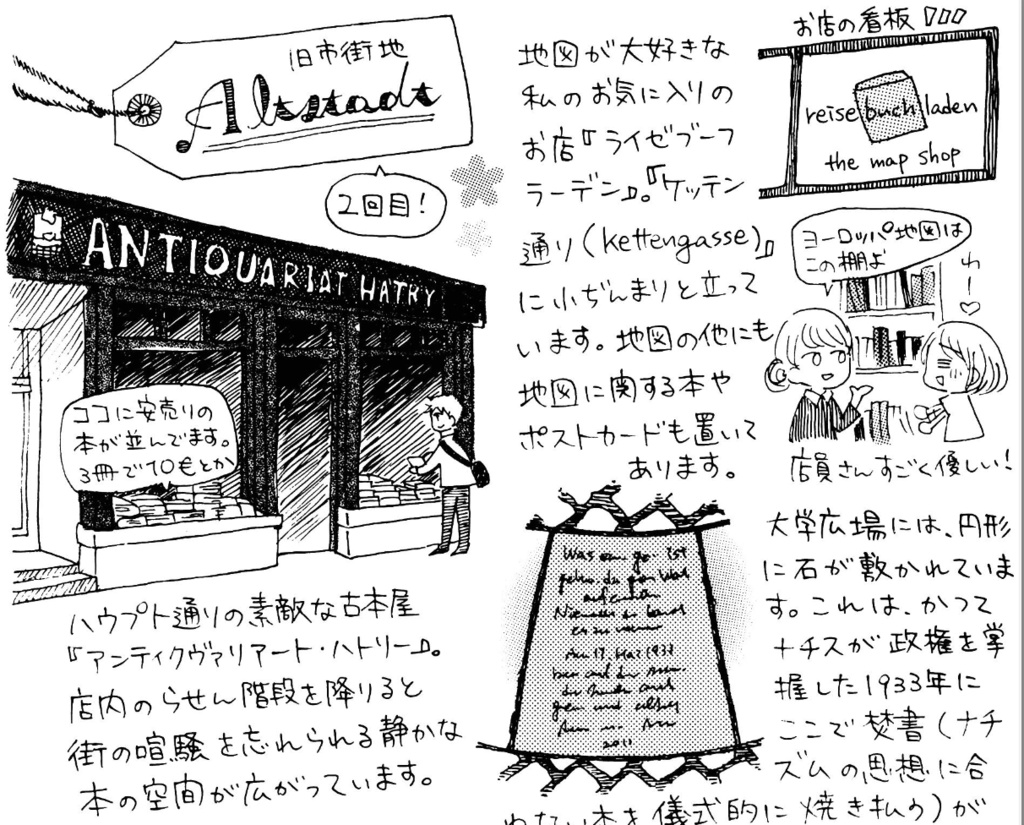 旧市街地
Altstadt
2回目!
ANTIQUARIAT HATRY
ココに安売りの
本が並んでます。
3冊で10€とか
ハウプト通りの素敵な古本屋
『アンティクヴァリアート・ハトリー』。
店内のらせん階段を降りると
街の喧騒を忘れられる静かな
本の空間が広がっています。
地図が大好きな
私のお気に入りの
お店『ライゼブーフ
ラーデン』。『ケッテン
通り(kettengasse)』
に小ぢんまりと立って
います。地図の他にも
地図に関する本や
ポストカードも置いて
あります。
お店の看板
reise buch laden
the map shop
ヨーロッパ地図は
この棚よ
わー♡
店員さんすごく優しい!
2011
大学広場には、円形
に石が敷かれていま
す。これは、かつて
ナチスが政権を掌
握した1933年に
ここで焚書(ナチ
ズムの思想に合
わない本を儀式的に焼き払う)が